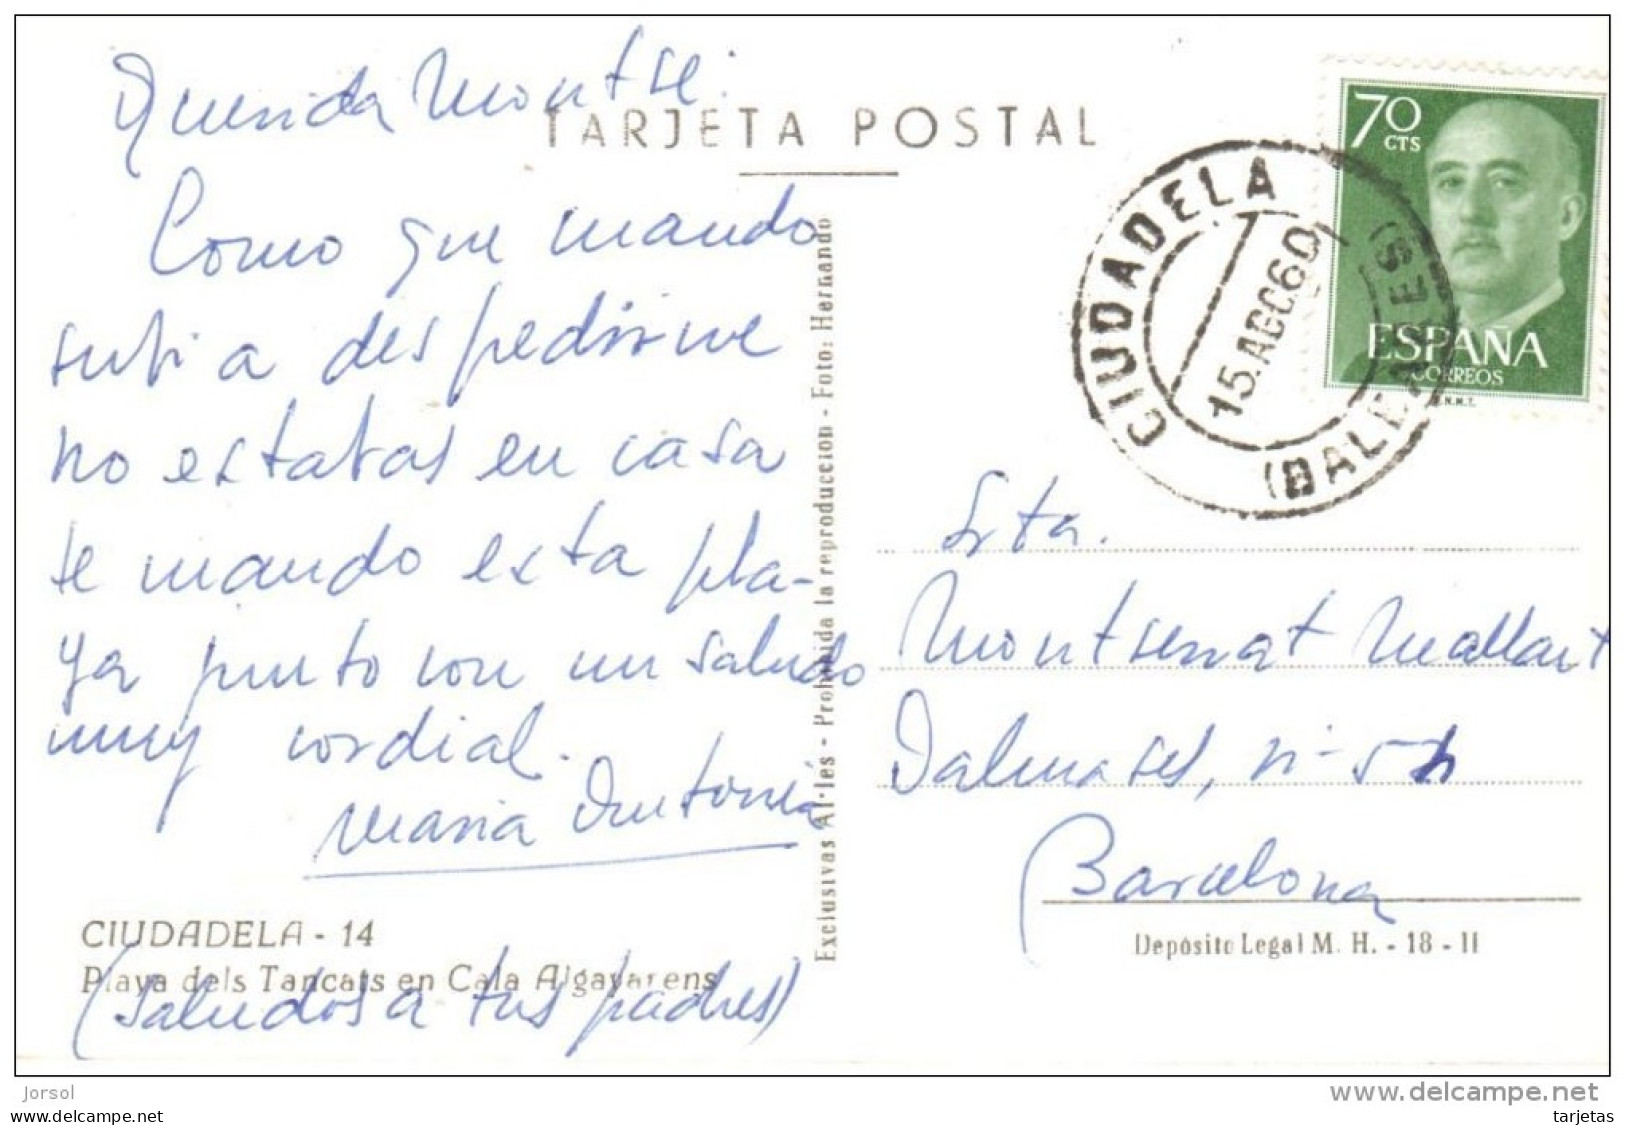 Querida Montse:
TARJETA POSTAL
Como que mando
subi a despedirme
no estabas en casa
te mando esta pla-
ya junto con un saludo
muy cordial.
Maria Antonia
CIUDADELA - 14
Playa dels Tancats en Cala Algayarens
(saludos a tus padres)
Exclusivas Al·lés - Prohibida la reproduccion - Foto: Hernando
70
CTS
ESPAÑA
CORREOS
F.N.M.T.
CIUDADELA
15.AGO60
(BALEARES)
Srta.
Montserrat Mallart
Dalmases, nº 54
Barcelona
Depósito Legal M. H. - 18 - II
Jorsol
www.delcampe.com
delcampe.net
tarjetas